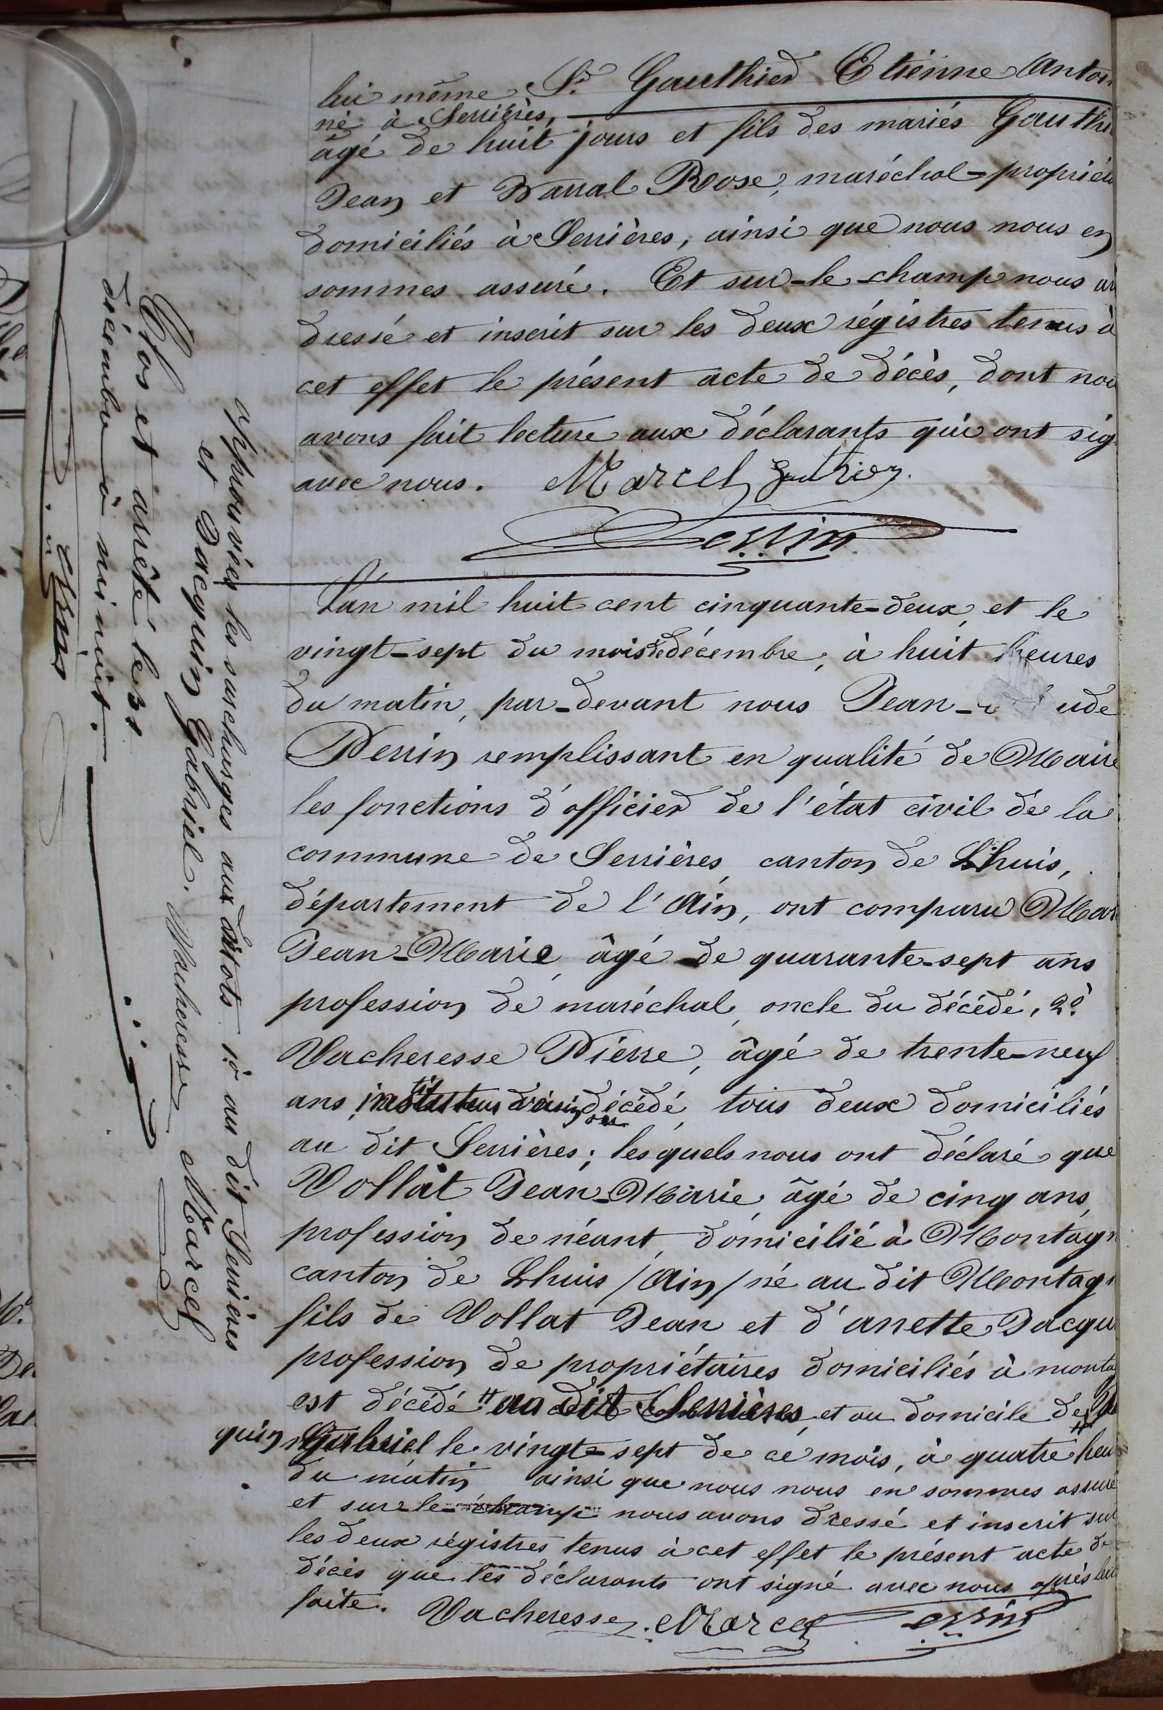 lui même, Sr. Gauthier Etienne Anton
né à Serrières,
âgé de huit jours et fils des mariés Gauthi
Jean et Varral Rose, maréchal-propriéta
domiciliés à Serrières, ainsi que nous nous en
sommes assuré. Et sur-le-champ nous av
dressé et inscrit sur les deux régistres tenus à
cet effet le présent acte de décès, dont nou
avons fait lecture aux déclarants qui ont sig
avec nous. Marcel Gauthier.
Perrin
L'an mil huit cent cinquante-deux, et le
vingt-sept du mois de décembre, à huit heures
du matin, par-devant nous Jean- ude
Perrin remplissant en qualité de Maire
les fonctions d'officier de l'état civil de la
commune de Serrières, canton de Lhuis,
département de l'Ain, ont comparu Mar
Jean-Marie, âgé de quarante-sept ans
profession de maréchal, oncle du décédé, 2º
Vacheresse Pierre, âgé de trente-neuf
ans, instituteur voisin du décédé, tous deux domiciliés
au dit Serrières; lesquels nous ont déclaré que
Vollat Jean-Marie, âgé de cinq ans,
profession de néant, domicilié à Montagn
canton de Lhuis /Ain/ né au dit Montagn
fils de Vollat Jean et d'anette Jacqu
profession de propriétaires domiciliés à monta
est décédé au dit Serrières, et au domicile de Jac
quin Gabriel, le vingt-sept de ce mois, à quatre heu
du matin ainsi que nous nous en sommes assuré
et sur-le-champ nous avons dressé et inscrit sur
les deux régistres tenus à cet effet le présent acte de
décès que les déclarants ont signé avec nous après lec
faite. Vacheresse. Marcel Perrin
Approuvées les surcharges aux mots 1º au dit Serrières
et Jacquin Gabriel. Vacheresse Marcel
Clos et arrêté le 31
décembre à minuit.
Perrin